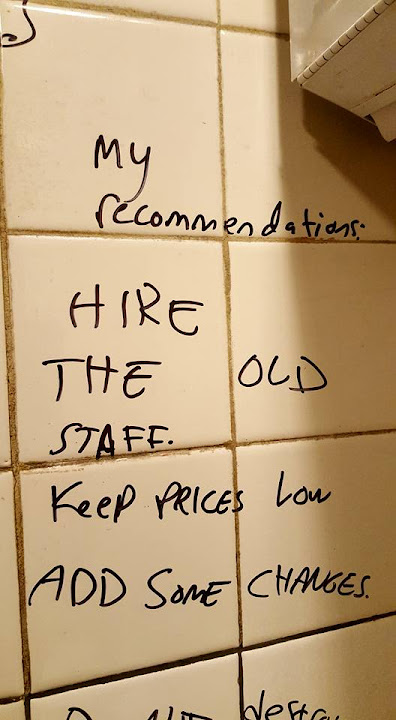 My
recommendations:
HIRE
THE OLD
STAFF.
Keep PRICES Low
ADD SOME CHANGES.